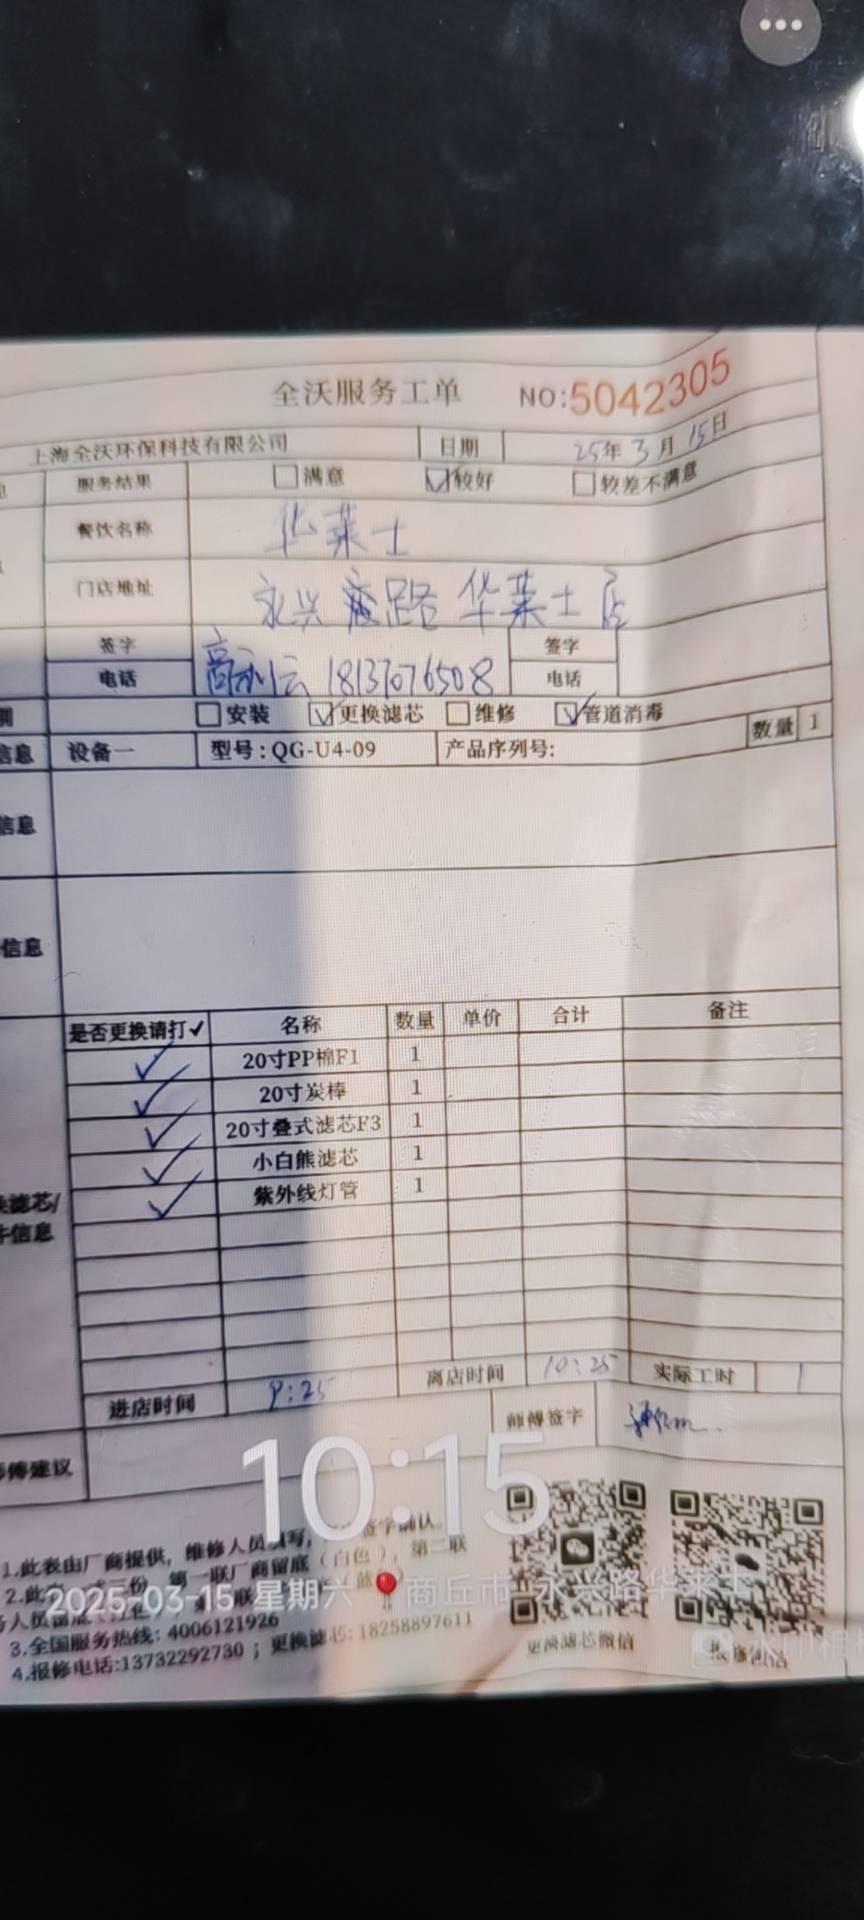 全沃服务工单 NO:5042305
上海全沃环保科技有限公司 日期 25年3月15日
服务结果 满意 较好 较差不满意
餐饮名称 华莱士
门店地址 永兴 路 华莱士店
签字 签字
电话 18137076508 电话
安装 更换滤芯 维修 管道消毒
信息 设备一 型号:QG-U4-09 产品序列号: 数量 1
信息
信息
是否更换请打✓ 名称 数量 单价 合计 备注
✓ 20寸PP棉F1 1
✓ 20寸炭棒 1
✓ 20寸叠式滤芯F3 1
✓ 小白熊滤芯 1
✓ 紫外线灯管 1
滤芯/
信息
进店时间 9:25 离店时间 10:25 实际工时 1
师傅签字
建议
10:15
1.此表由厂商提供，维修人员填写，签字确认.
2.此 份，第一联厂商留底（白色），第二联
2025-03-15 星期六 商丘市·永兴路华莱士
3.全国服务热线: 4006121926
4.报修电话:13732292730 ；更换滤芯: 18258897611
更换滤芯微信